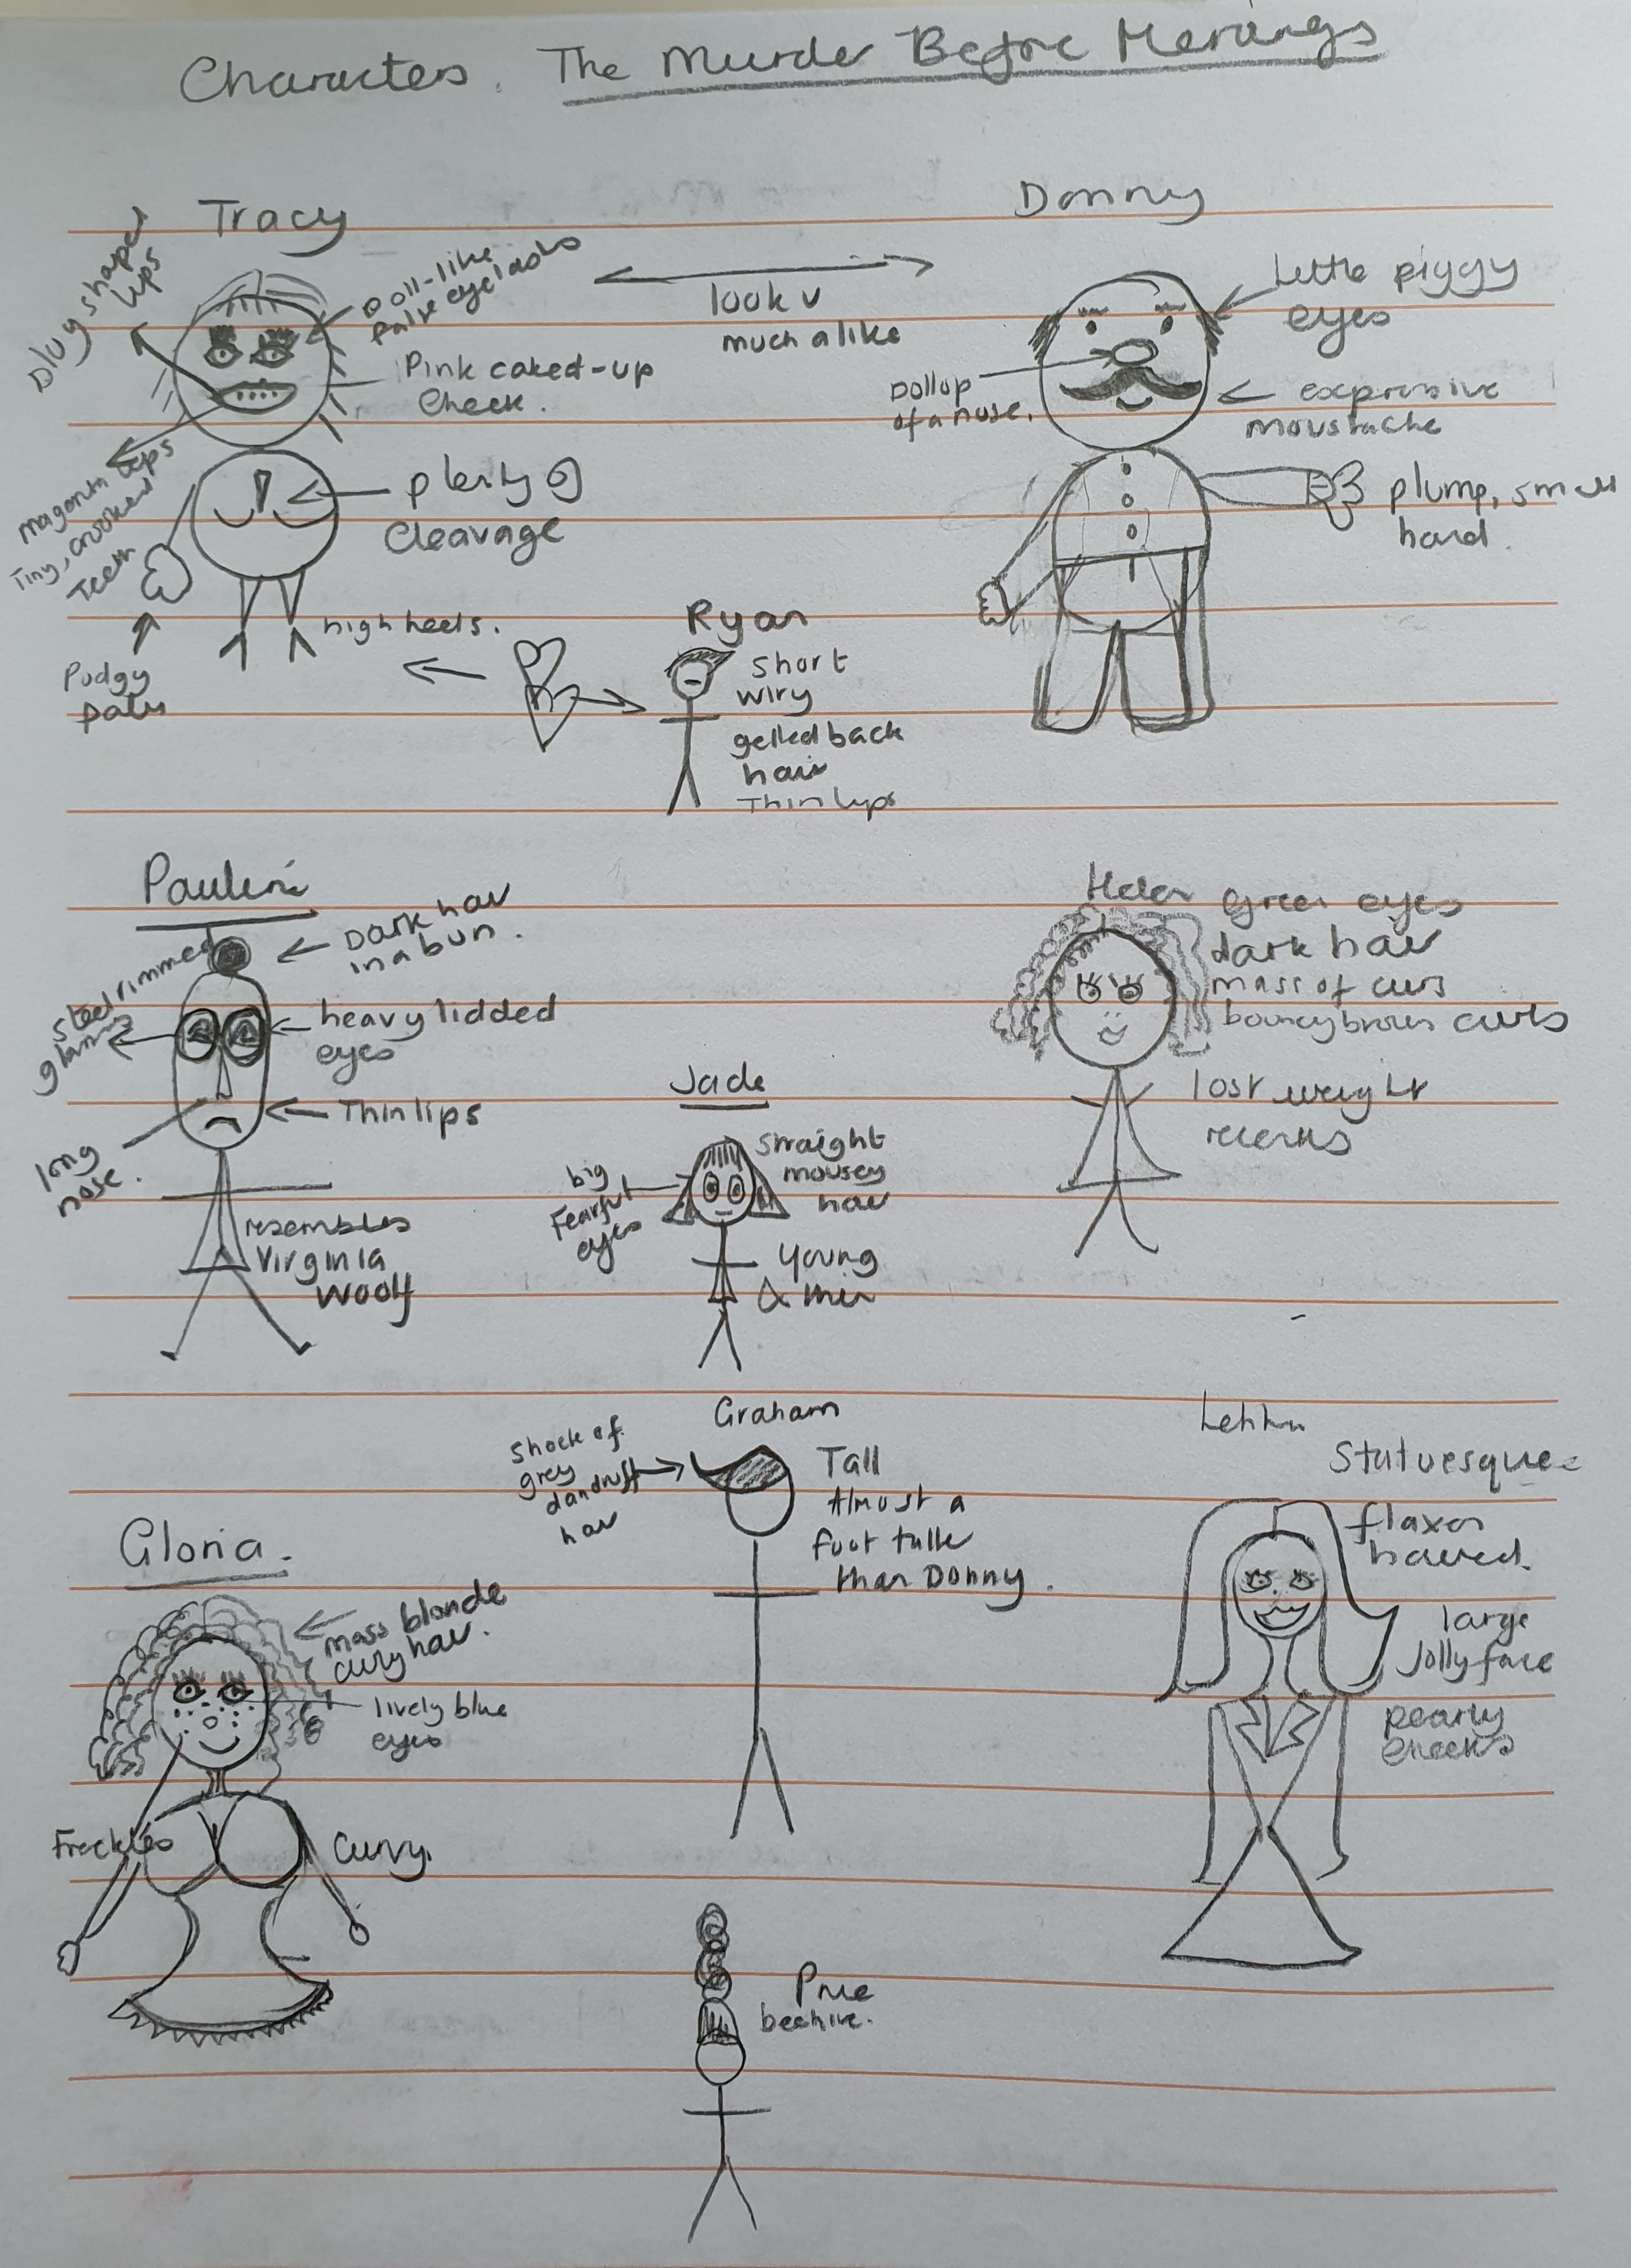 Characters. The Murder Before Merangs
Tracy
Slug shaped
lips
Doll-like
false eyelashes
Pink caked-up
cheek.
magenta lips
Tiny, crooked
Teeth
plenty of
cleavage
high heels.
Pudgy
look v
much alike
Donny
Little piggy
eyes
Dollop
of a nose.
expressive
moustache
plump, small
hand.
Ryan
short
wiry
gelled back
hair
Thin lips
Pauline
Dark hair
in a bun.
steel rimmed
glasses
heavy lidded
eyes
Thin lips
long
nose.
resembles
Virginia
Woolf
Jade
straight
mousey
hair
big
Fearful
eyes
Young
& thin
Helen
Green eyes
dark hair
mass of curls
bouncy brown curls
lost weight
recently
Graham
Shock of
grey
dandruff
hair
Tall
Almost a
foot taller
than Donny.
Statuesque
flaxen
haired.
large
Jolly face
pearly
cheeks
Gloria.
mass blonde
curly hair.
lively blue
eyes
Freckles
Curvy.
Prue
beehive.